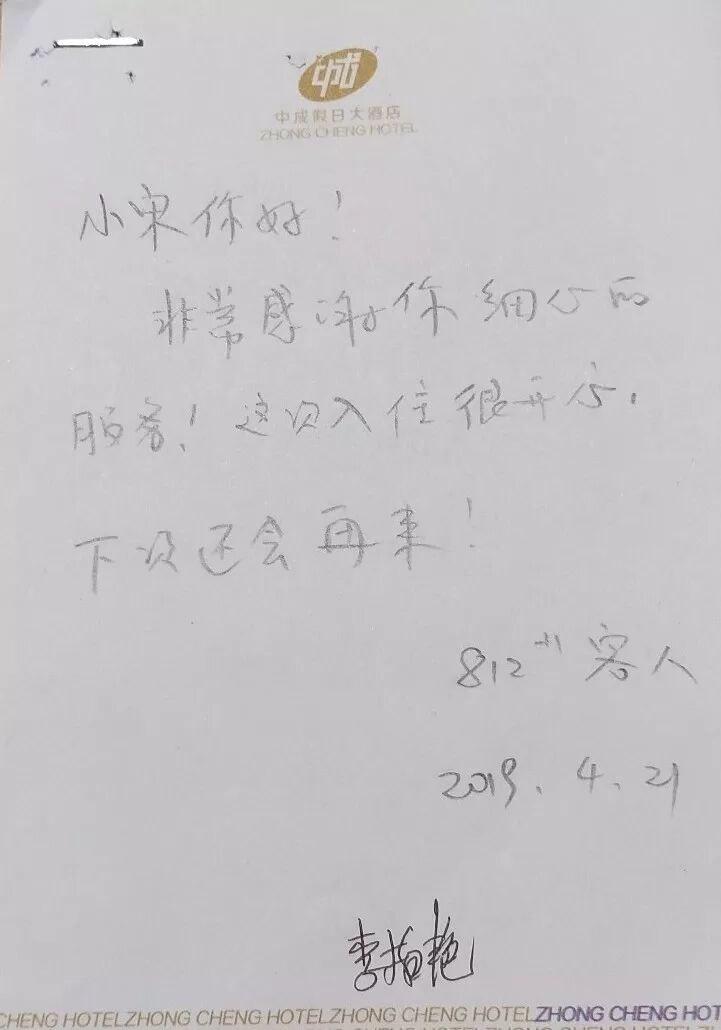 中成
中成假日大酒店
ZHONG CHENG HOTEL
小宋你好！
非常感谢你细心的
服务！这次入住很开心，
下次还会再来！
812# 客人
2019.4.21
李
CHENG HOTELZHONG CHENG HOTELZHONG CHENG HOTELZHONG CHENG HOT